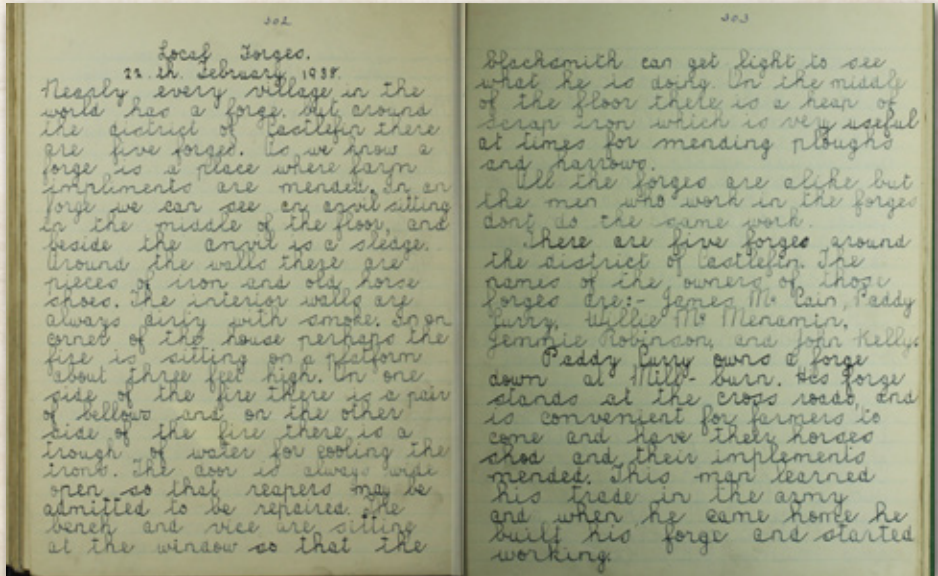 302
Local Forges.
22. th. February, 1938.
Nearly every village in the
world has a forge. but around
the district of Castlefin there
are five forges. As we know a
forge is a place where farm
impliments are mended. In an
forge we can see an anvil sitting
in the middle of the floor, and
beside the anvil is a sledge.
Around the walls there are
pieces of iron and old horse
shoes. The interior walls are
always dirty with smoke. In on
corner of the house perhaps the
fire is sitting on a platform
about three feet high. On one
side of the fire there is a pair
of bellows and on the other
side of the fire there is a
trough of water for cooling the
irons. The door is always wide
open so that reapers may be
admitted to be repaired. The
bench and vice are sitting
at the window so that the
303
blacksmith can get light to see
what he is doing. On the middle
of the floor there is a heap of
scrap iron which is very useful
at times for mending ploughs
and harrows.
All the forges are alike but
the men who work in the forges
dont do the same work.
There are five forges around
the district of Castlefin. The
names of the owners of those
forges are:- James Mc Cain, Paddy
Curry, Willie Mc Menamin,
Jemmie Robinson, and John Kelly.
Paddy Curry owns a forge
down at Mill-burn. His forge
stands at the cross roads, and
is convenient for farmers to
come and have their horses
shod and their implements
mended. This man learned
his trade in the army
and when he came home he
built his forge and started
working.